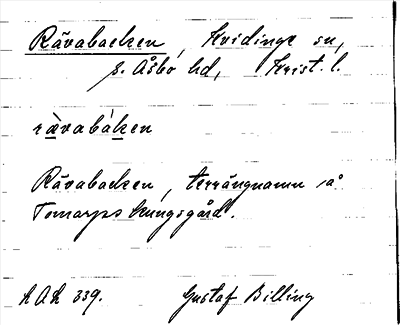 Rävabacken, Kvidinge sn,
S. Åsbo hd, Krist. l.
rävabáken
Rävabacken, terrängnamn på
Tomarps kungsgård.
LAL 339. Gustaf Billing